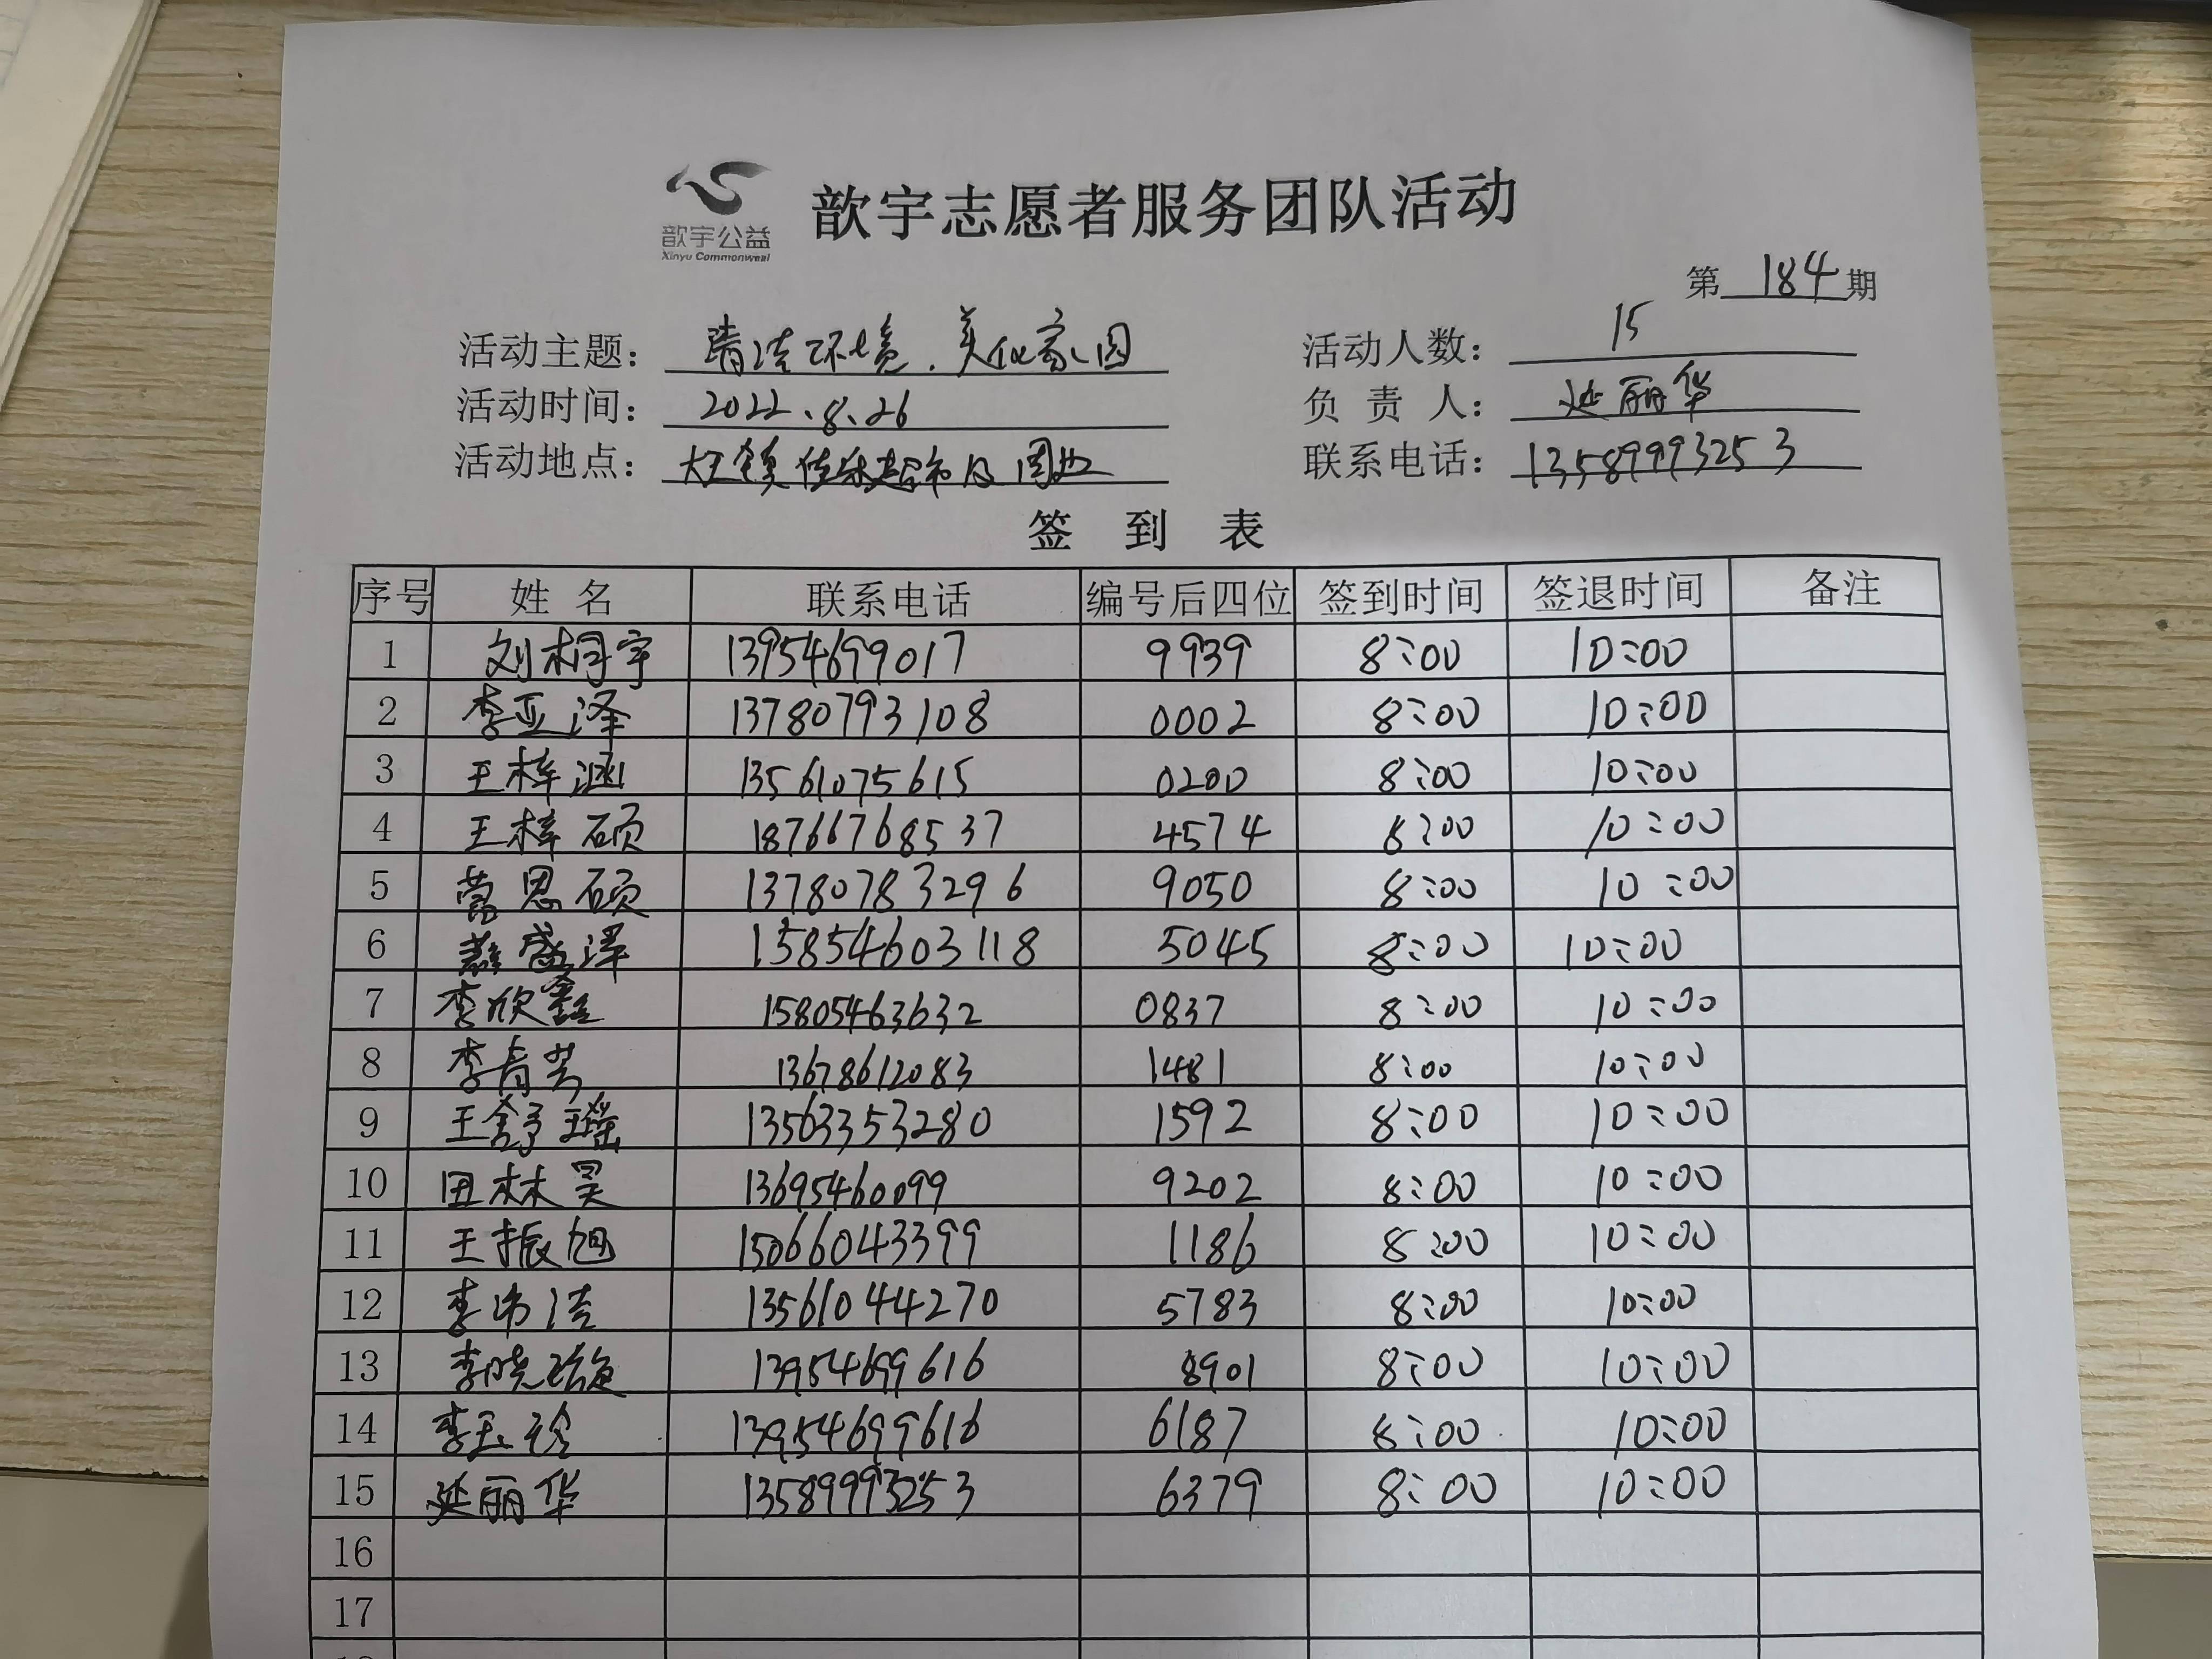 歆宇公益
Xinyu Commonweal
歆宇志愿者服务团队活动
第 184 期
活动主题： 清洁环境.美化家园 活动人数： 15
活动时间： 2022.8.26 负 责 人： 延丽华
活动地点： 大王镇佳乐超市及周边 联系电话： 13589993253
签 到 表
序号 姓 名 联系电话 编号后四位 签到时间 签退时间 备注
1 刘桐宇 13954699017 9939 8:00 10:00
2 李亚泽 13780793108 0002 8:00 10:00
3 王梓涵 13561075615 0200 8:00 10:00
4 王梓硕 18766768537 4574 8:00 10:00
5 思硕 13780783296 9050 8:00 10:00
6 盛泽 15854603118 5045 8:00 10:00
7 李欣鑫 15805463632 0837 8:00 10:00
8 李青芸 13678612083 1481 8:00 10:00
9 王舒瑶 13563353280 1592 8:00 10:00
10 田林昊 13695460099 9202 8:00 10:00
11 王振旭 15066043399 1186 8:00 10:00
12 李洁 13561044270 5783 8:00 10:00
13 李晓璇 13954699616 8901 8:00 10:00
14 李玉玲 13954699616 6187 8:00 10:00
15 延丽华 13589993253 6379 8:00 10:00
16
17